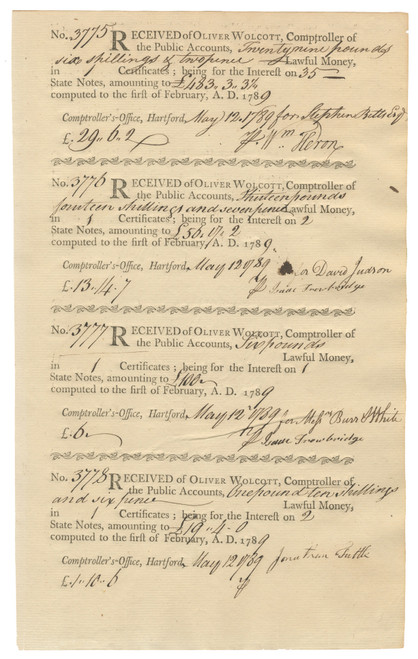 No. 3775 RECEIVED of OLIVER WOLCOTT, Comptroller of
the Public Accounts, Twenty nine pounds
six shillings & two pence Lawful Money,
in Certificates; being for the Interest on 35
State Notes, amounting to £483..3..3½
computed to the first of February, A. D. 1789
Comptroller's-Office, Hartford, May 12. 1789 for Stephen Betts Esqr
£. 29..6..2 Pr. Wm Heron
No. 3776 RECEIVED of OLIVER WOLCOTT, Comptroller of
the Public Accounts, Thirteen pounds
fourteen shillings and seven pence Lawful Money,
in 1 Certificates; being for the Interest on 2
State Notes, amounting to
computed to the first of February, A. D. 1789.
Comptroller's-Office, Hartford, May 12 1789 for David Judson
£.13..4..7 Pr Isaac Trowbridge
No. 3777 RECEIVED of OLIVER WOLCOTT, Comptroller of
the Public Accounts, Six pounds
Lawful Money,
in 1 Certificates; being for the Interest on 1
State Notes, amounting to £100
computed to the first of February, A. D. 1789
Comptroller's-Office, Hartford, May 12 1789 for Messrs Burr & White
£.6 Pr Isaac Trowbridge
No. 3778 RECEIVED of OLIVER WOLCOTT, Comptroller of
the Public Accounts, One pound ten shillings
and six pence Lawful Money,
in 1 Certificates; being for the Interest on 2
State Notes, amounting to £19..4..0
computed to the first of February, A. D. 1789
Comptroller's-Office, Hartford, May 12 1789 Jonathan Tuttle
£.1..10..6